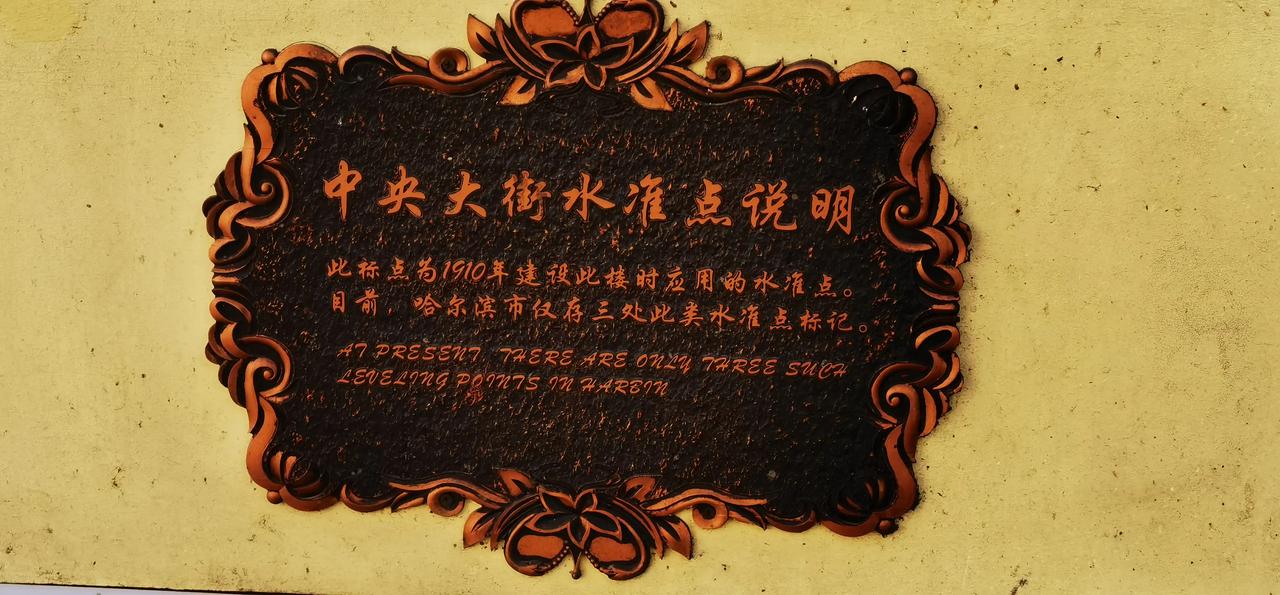 中央大街水准点说明
此标点为1910年建设此楼时应用的水准点。
目前，哈尔滨市仅存三处此类水准点标记。
AT PRESENT, THERE ARE ONLY THREE SUCH
LEVELING POINTS IN HARBIN